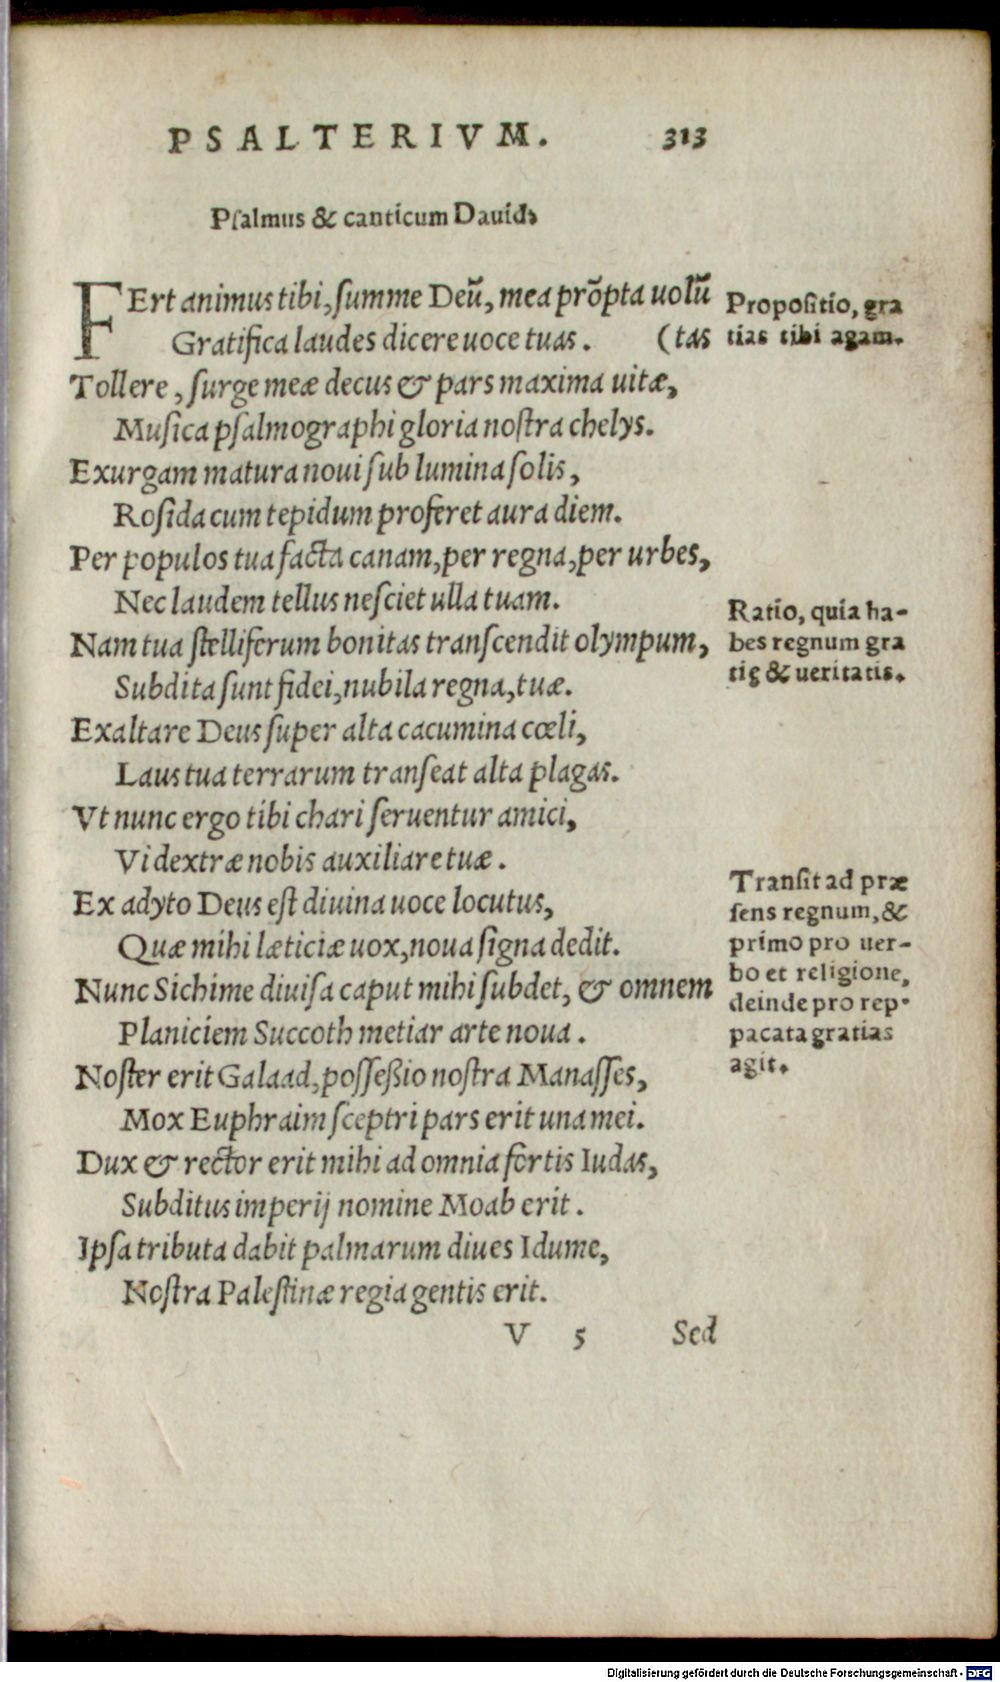 PSALTERIVM. 313
Psalmus & canticum Dauid.
FErt animus tibi, summe Deũ, mea prõpta uolũ
Gratifica laudes dicere uoce tuas. (tas
Tollere, surge meæ decus & pars maxima uitæ,
Musica psalmographi gloria nostra chelys.
Exurgam matura noui sub lumina solis,
Rosida cum tepidum proferet aura diem.
Per populos tua facta canam, per regna, per urbes,
Nec laudem tellus nesciet ulla tuam.
Nam tua stelliferum bonitas transcendit olympum,
Subdita sunt fidei, nubila regna, tuæ.
Exaltare Deus super alta cacumina cœli,
Laus tua terrarum transeat alta plagas.
Vt nunc ergo tibi chari seruentur amici,
Vi dextræ nobis auxiliare tuæ.
Ex adyto Deus est diuina uoce locutus,
Quæ mihi læticiæ uox, noua signa dedit.
Nunc Sichime diuisa caput mihi subdet, & omnem
Planiciem Succoth metiar arte noua.
Noster erit Galaad, possessio nostra Manasses,
Mox Euphraim sceptri pars erit una mei.
Dux & rector erit mihi ad omnia fortis Iudas,
Subditus imperij nomine Moab erit.
Ipsa tributa dabit palmarum diues Idume,
Nostra Palestinæ regia gentis erit.
V 5 Sed
Propositio, gra
tias tibi agam.
Ratio, quia ha-
bes regnum gra
tię & ueritatis.
Transit ad præ
sens regnum, &
primo pro uer-
bo et religione,
deinde pro rep.
pacata gratias
agit.
Digitalisierung gefördert durch die Deutsche Forschungsgemeinschaft - DFG